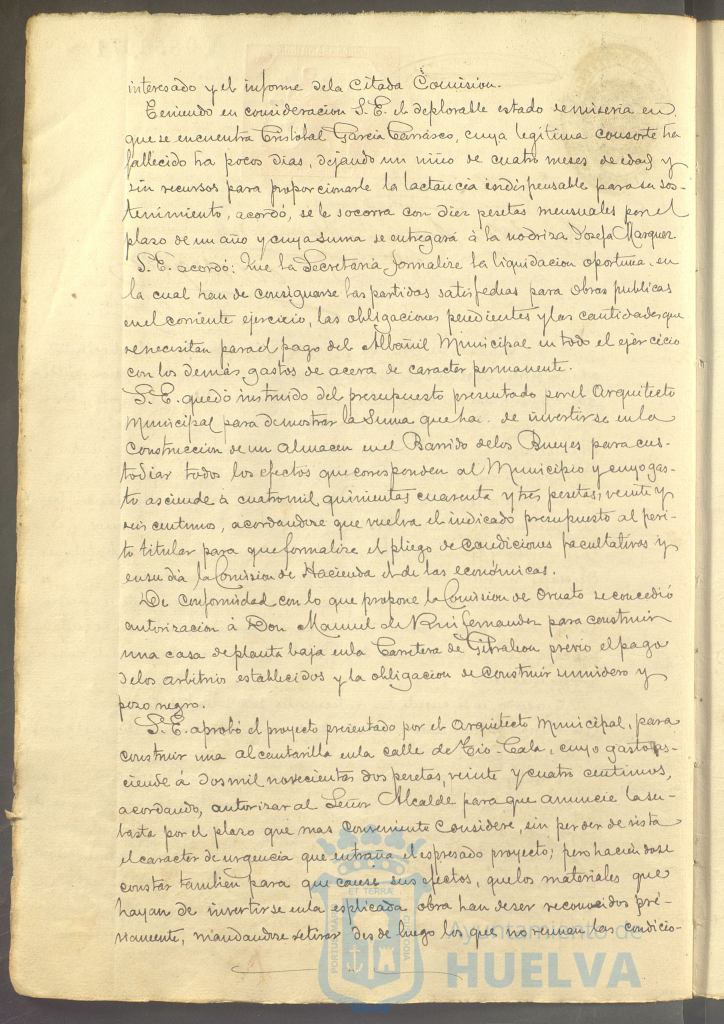 interesado y el informe dela citada Comision.
Teniendo en consideracion S.E. el deplorable estado de miseria en
que se encuentra Cristobal García Carrasco, cuya legitima consorte ha
fallecido ha pocos dias, dejando un niño de cuatro meses de edad y
sin recursos para proporcionarle la lactancia indispensable para su sos-
tenimiento, acordó, se le socorra con diez pesetas mensuales por el
plazo de un año y cuya suma se entregará á la nodriza Josefa Marquez.
S.E. acordó: Que la Secretaria formalice la liquidacion oportuna en
la cual han de consignarse las partidas satisfechas para obras publicas
en el corriente ejercicio, las obligaciones pendientes y las cantidades que
se necesitan para el pago del Albañil Municipal en todo el ejercicio
con los demás gastos de acera de caracter permanente.
S.E. quedó instruido del presupuesto presentado por el Arquitecto
Municipal para demostrar la suma que ha de invertirse en la
construccion de un almacen en el Barrido de los Bueyes para cus-
todiar todos los efectos que corresponden al Municipio y cuyo gas-
to asciende á cuatro mil quinientas cuarenta y tres pesetas, veinte y
seis centimos, acordandose que vuelva el indicado presupuesto al peri-
to titular para que formalice el pliego de condiciones facultativas y
en su dia la Comision de Hacienda el de las económicas.
De conformidad con lo que propone la Comision de Ornato se concedió
autorizacion á Don Manuel de Rui fernandez para construir
una casa de planta baja en la Carretera de Gibraleon prévio el pago
delos arbitrios establecidos y la obligacion de construir sumidero y
pozo negro.
S.E. aprobó el proyecto presentado por el Arquitecto Municipal, para
construir una alcantarilla en la calle de Tio Cala, cuyo gasto as-
ciende á dos mil novecientas dos pesetas, veinte y cuatro centimos,
acordando, autorizar al Señor Alcalde para que anuncie la su-
basta por el plazo que mas conveniente considere, sin perder de vista
el caracter de urgencia que entraña el espresado proyecto; pero haciendose
constar tambien para que cause sus efectos, que los materiales que
hayan de invertirse en la esplicada obra han de ser reconocidos pré-
viamente, mandandose retirar desde luego los que no reunan las condicio-
Ayuntamiento de
HUELVA